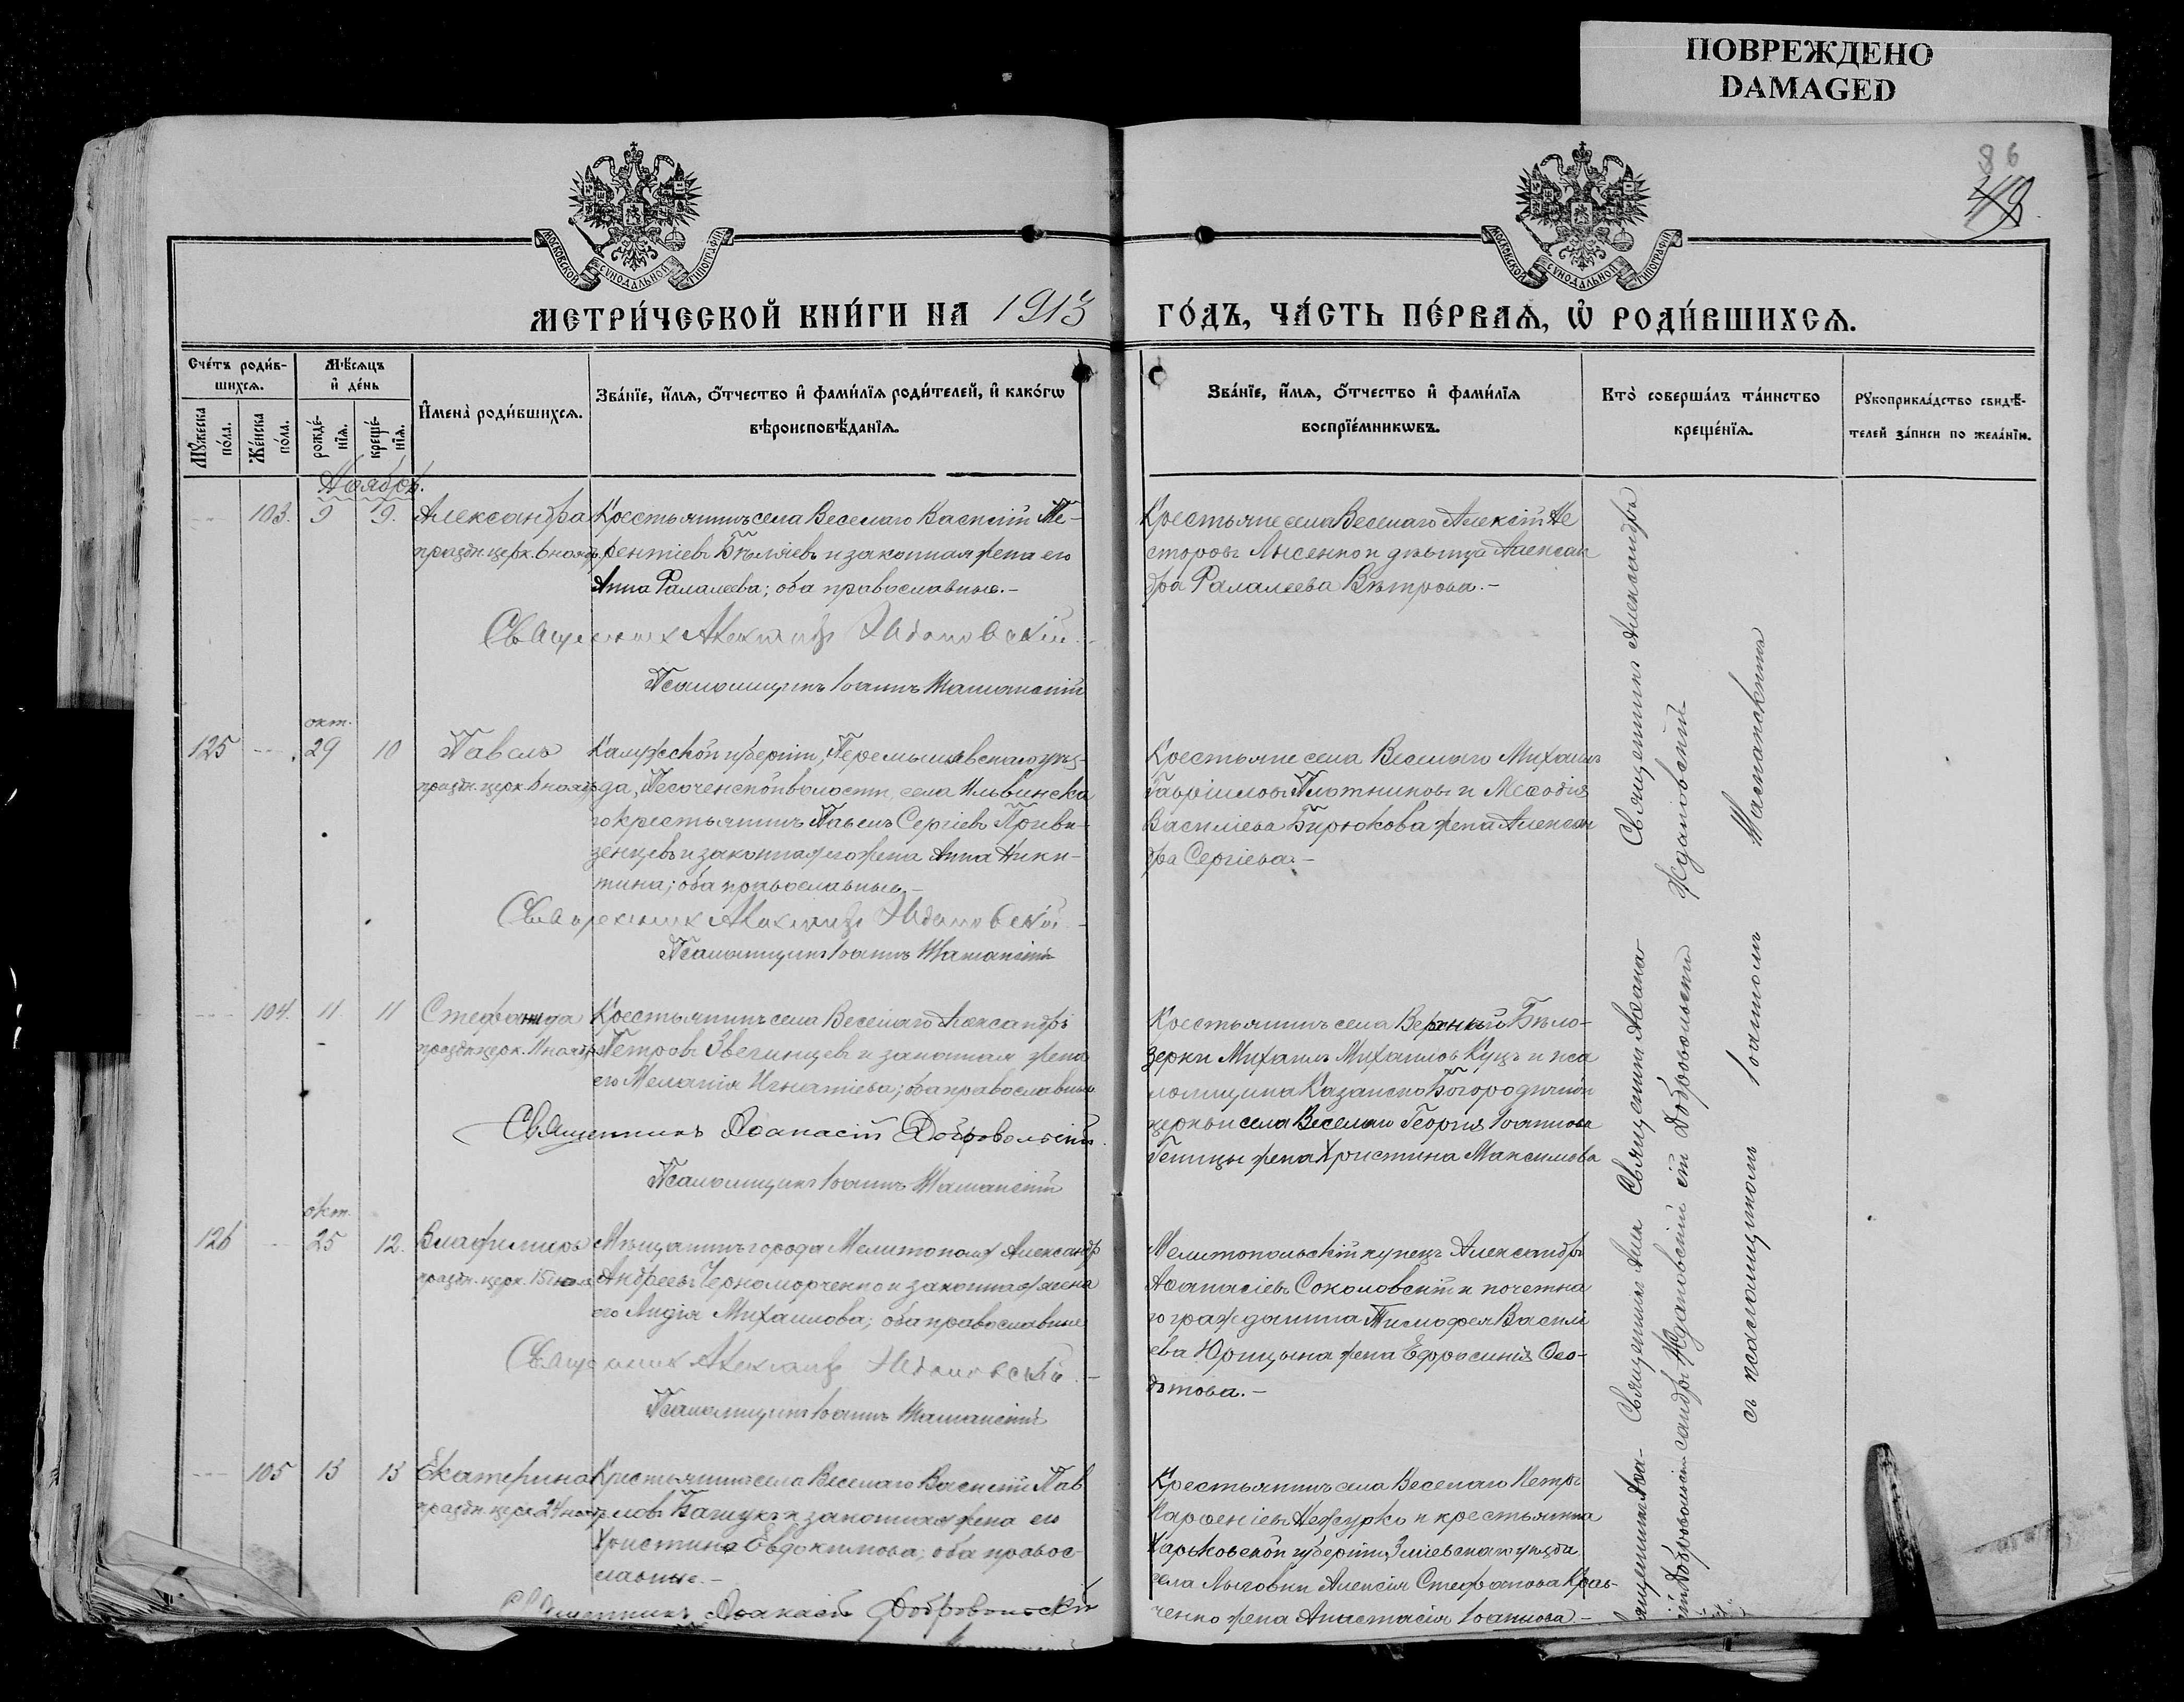 ПОВРЕЖДЕНО
DAMAGED
86
49
МОСКОВСКОЙ СУНОДАЛЬНОЙ ТИПОГРАФІИ
МОСКОВСКОЙ СУНОДАЛЬНОЙ ТИПОГРАФІИ
МЕТРИ́ЧЕСКОЙ КНИ́ГИ НА 1913
ГО́ДЪ, ЧА́СТЬ ПЕ́РВАѦ, Ѡ҆ РОДИ́ВШИХСѦ.
Сче́тъ роди́в-
шихсѧ.
Мꙋ́жеска по́ла.
Же́нска по́ла.
Мѣ́сѧцъ
и҆ де́нь
рожде́-
нїѧ.
креще́-
нїѧ.
И҆мена̀ роди́вшихсѧ.
Зва́нїе, и҆́мѧ, ѻ҆́тчество и҆ фами́лїѧ роди́телей, и҆ како́гѡ
вѣроисповѣ́данїѧ.
Зва́нїе, и҆́мѧ, ѻ҆́тчество и҆ фами́лїѧ
воспрїе́мникѡвъ.
Кто̀ соверша́лъ та́инство
креще́нїѧ.
Рꙋкоприкла́дство свидѣ́-
телей за́писи по жела́нїю.
Ноябрь.
103. 9 9. Александра
праздн. церк. 6 ноябр.
Крестьянинъ села Веселаго Василій Те-
рентіевъ Бѣляевъ и законная жена его
Анна Фалалеева; оба православные.-
Священник Александр Ждановский
Псаломщикъ Іоаннъ Шаманскій
Крестьяне села Веселаго Алексій Не
сторовъ Лысенко и дѣвица Алексан
дра Фалалеева Вѣтрова.-
125 окт. 29 10 Павелъ
праздн. церк. 6 ноябр.
Калужской губерніи, Перемышльскаго уѣз-
да, Песоченской волости, села Ильинска
го крестьянинъ Павелъ Сергіевъ
и законная его жена Анна Ники-
тина; оба православные.-
Священник Александр Ждановский
Псаломщикъ Іоаннъ Шаманскій
Крестьяне села Веселаго Михаилъ
Гавріиловъ Плотниковъ и Меѳодія
Василіева Бирюкова жена Алексан
дра Сергіева.-
104. 11 11 Стефанида
праздн. церк. 11 ноябр.
Крестьянинъ села Веселаго Александръ
Петровъ Звегинцевъ и законная жена
его Меланія Игнатіева; оба православные
Священникъ Аѳанасій Добровольскій.
Псаломщикъ Іоаннъ Шаманскій
Крестьянинъ села Верхней Бѣло-
зерки Михаилъ Михаиловъ Куцъ и пса
ломщика Казанско Богородичной
церкви села Веселаго Георгія Іоаннова
жена Христина Максимова
126 окт. 25 12. Владимиръ
праздн. церк. 15 июля
Мѣщанинъ города Мелитополя Александръ
Андреевъ Черноморченко и законная жена
его Лидія Михаилова; оба православные
Священник Александр Ждановский.-
Псаломщикъ Іоаннъ Шаманскій
Мелитопольскій купецъ Александръ
Аѳанасіевъ Соколовскій и почетна
го гражданина Тимофея Василі
ева Юрицына жена Ефросинія Ѳео-
дотова.-
105 13 13 Екатерина
праздн. церк. 24 ноябр.
Крестьянинъ села Веселаго Василій Пав
ловъ и законная жена его
Христина Евдокимова; оба правос-
лавные.-
Священникъ Аѳанасій Добровольскій
Крестьянинъ села Веселаго Петръ
Парѳеніевъ Нежурко и крестьянина
Харьковской губерніи, Зміевскаго уѣзда
села Лиговки Алексія Стефанова Крав-
ченко жена Анастасія Іоаннова.-
Священникъ Александръ
Ждановский
Священникъ Аѳана-
сій Добровольскій
Священникъ Алек-
сандръ Ждановскій
Священникъ Аѳа-
насій Добровольскій
съ псаломщикомъ Іоанномъ Шаманскимъ